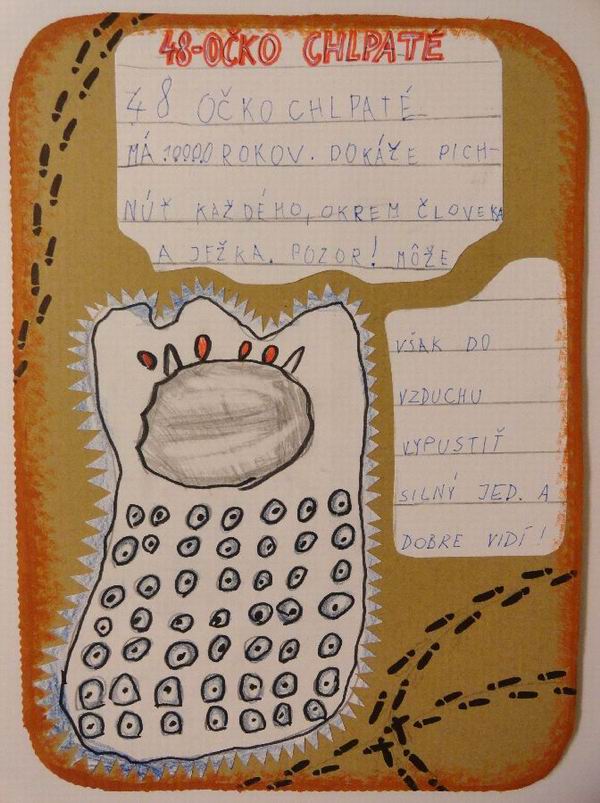 48-OČKO CHLPATÉ
48 OČKO CHLPATÉ
MÁ 10000 ROKOV. DOKÁŽE PICH-
NÚŤ KAŽDÉHO, OKREM ČLOVEKA
A JEŽKA. POZOR! MÔŽE
VŠAK DO
VZDUCHU
VYPUSTIŤ
SILNÝ JED. A
DOBRE VIDÍ!